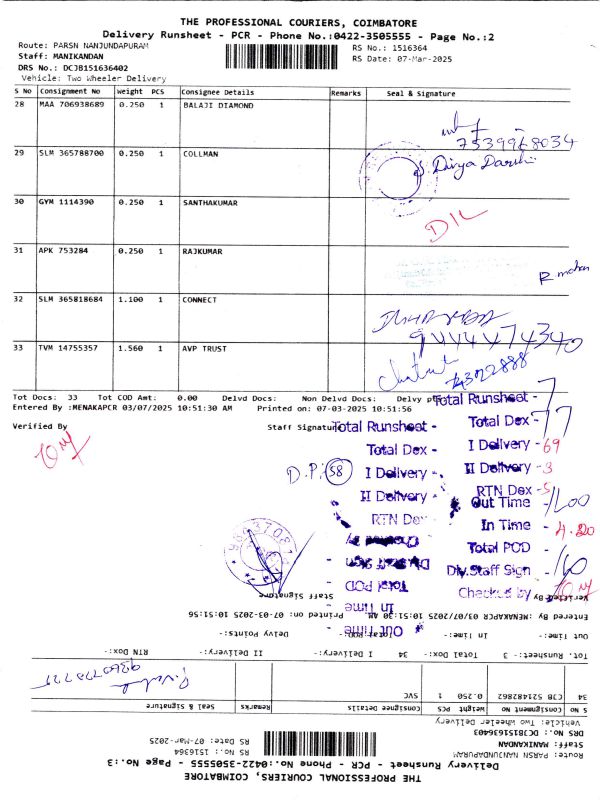 THE PROFESSIONAL COURIERS, COIMBATORE
Delivery Runsheet - PCR - Phone No.:0422-3505555 - Page No.:2
Route: PARSN NANJUNDAPURAM
RS No.: 1516364
Staff: MANIKANDAN
RS Date: 07-Mar-2025
DRS No.: DCJB151636402
Vehicle: Two Wheeler Delivery
S No Consignment No Weight PCS Consignee Details Remarks Seal & Signature
28 MAA 706938689 0.250 1 BALAJI DIAMOND
7539968034
29 SLM 365788700 0.250 1 COLLMAN
Divya Darshi
30 GYM 1114390 0.250 1 SANTHAKUMAR
DIL
31 APK 753284 0.250 1 RAJKUMAR
R mohan
32 SLM 365818684 1.100 1 CONNECT
9444474340
33 TVM 14755357 1.560 1 AVP TRUST
Tot Docs: 33 Tot COD Amt: 0.00 Delvd Docs: Non Delvd Docs: Delvy
Entered By :MENAKAPCR 03/07/2025 10:51:30 AM Printed on: 07-03-2025 10:51:56
Verified By
Staff Signature
Total Runsheet - 7
Total Dex - 77
I Delivery - 69
II Delivery - 3
RTN Dex - 5
Out Time -
In Time - 4.20
Total POD - 
Dly.Staff Sign
Checked by
Total Runsheet -
Total Dex -
D.P. 58
I Delivery -
II Delivery -
RTN Dex
Checked by
Dly.Staff Sign -
Total POD
In Time
Out Time
Verified By
Staff Signature
Entered By :MENAKAPCR 03/07/2025 10:51:30 AM Printed on: 07-03-2025 10:51:56
Out Time:- In Time:- Total POD:- Delvy Points:-
Tot. Runsheet:- 3 Total Dox:- 34 I Delivery:- II Delivery:- RTN Dox:-
34 CJB 521482862 0.250 1 SVC
S No Consignment No Weight PCS Consignee Details Remarks Seal & Signature
Vehicle: Two Wheeler Delivery
DRS No.: DCJB151636403
Staff: MANIKANDAN
RS Date: 07-Mar-2025
Route: PARSN NANJUNDAPURAM
RS No.: 1516364
Delivery Runsheet - PCR - Phone No.:0422-3505555 - Page No.:3
THE PROFESSIONAL COURIERS, COIMBATORE